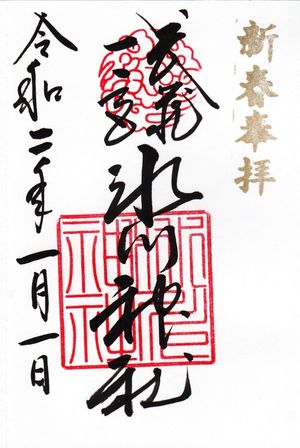 新春奉拝
武蔵
一宮
氷川神社
令和二年一月一日